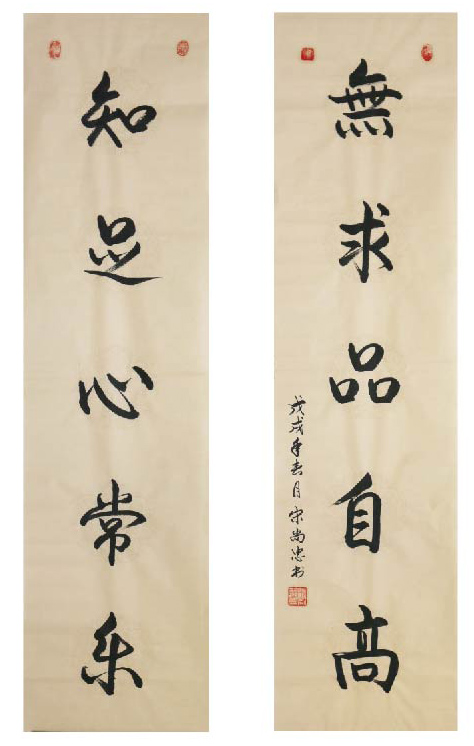 知足心常乐
無求品自高
戊戌年吉月宋尚忠书